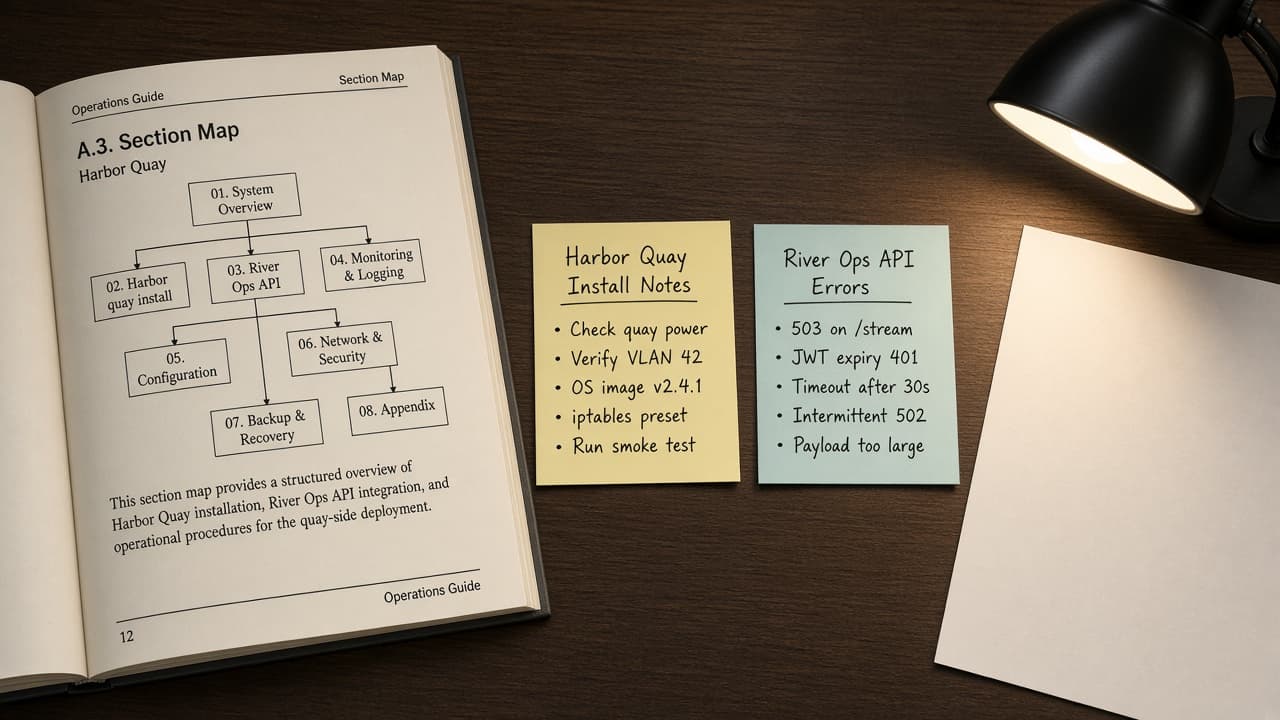 Operations Guide
Section Map
A.3. Section Map
Harbor Quay
01. System
Overview
02. Harbor
quay install
03. River
Ops API
04. Monitoring
& Logging
05.
Configuration
06. Network &
Security
07. Backup &
Recovery
08. Appendix
This section map provides a structured overview of
Harbor Quay installation, River Ops API integration, and
operational procedures for the quay-side deployment.
Operations Guide
12
Harbor Quay
Install Notes
• Check quay power
• Verify VLAN 42
• OS image v2.4.1
• iptables preset
• Run smoke test
River Ops API
Errors
• 503 on /stream
• JWT expiry 401
• Timeout after 30s
• Intermittent 502
• Payload too large